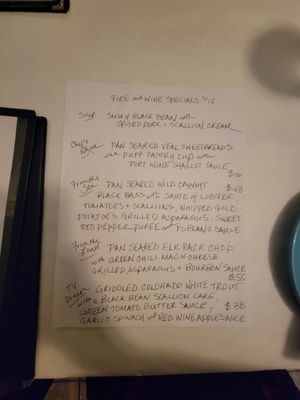 FIRE and WINE SPECIALS
Soup SMOKY BLACK BEAN with
SPICED PORK + SCALLION CREAM
Chef's PAN SEARED VEAL SWEETBREADS
in a PUFF PASTRY CUP with
PORT WINE SHALLOT SAUCE
$16
From the Sea PAN SEARED WILD CAUGHT $48
BLACK BASS with SAUTE of LOBSTER,
TOMATOES + SCALLIONS, WHIPPED GOLD
POTATOES, GRILLED ASPARAGUS, SWEET
RED PEPPER PUREE and POBLANO SAUCE
From the Land PAN SEARED ELK RACK CHOP
with GREEN CHILI MAC-N-CHEESE
GRILLED ASPARAGUS + BOURBON SAUCE
$58
TV Dinner GRIDDLED COLORADO WHITE TROUT
with a BLACK BEAN SCALLION CAKE,
GREEN TOMATO BUTTER SAUCE, $38
GARLIC SPINACH and RED WINE APPLESAUCE